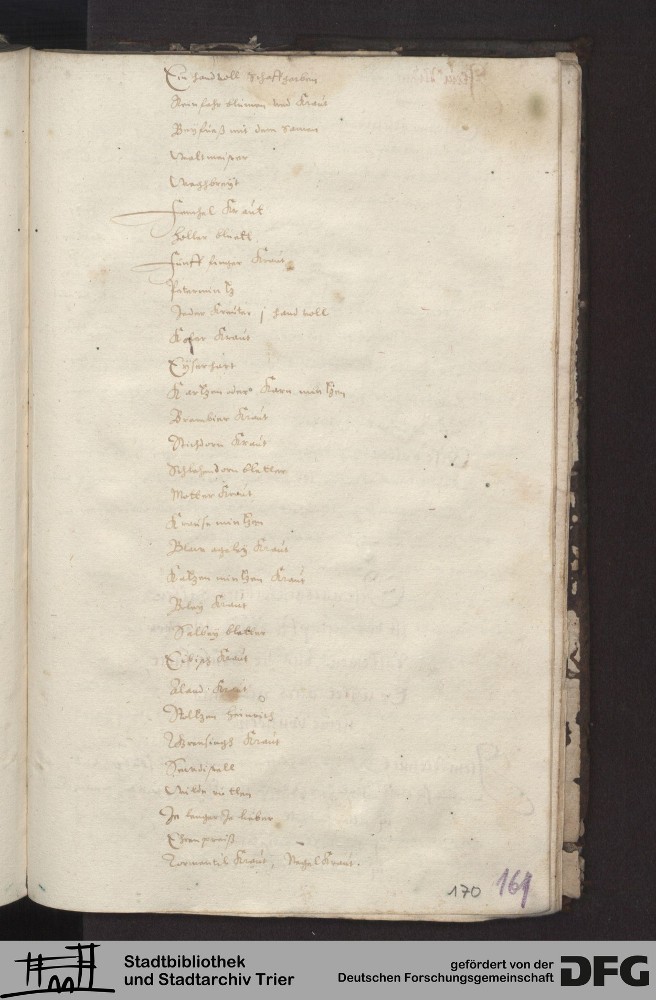 Ein handvoll Schaffgarben
Reinfahr blumen und Kraut
Beyfueß mit dem Samen
Waltmeister
Weghbreyt
Fenchel Kraut
Holler bleatt
Fünff finger Kraut
Petermintz
Jeder Kreuter j hand voll
Kraut
Eyserhart
Kartzen oder Karn mintzen
Brombier Kraut
Stichdorn Kraut
Schlehendorn bletter
Metter Kraut
Krause mintzen
Blaw Kraut
Katzen mintzen Kraut
Poley Kraut
Salbey bletter
Kraut
Aland Kraut
Stoltzen Heinrich
Kraut
Wilde
Je lenger Je lieber
Ehrenpreiß
Tormentil Kraut, Kraut.
170 169
Stadtbibliothek
und Stadtarchiv Trier
gefördert von der
Deutschen Forschungsgemeinschaft
DFG